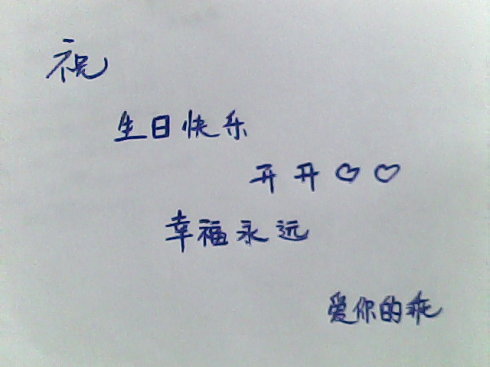 祝
生日快乐
开开♡♡
幸福永远
爱你的乖